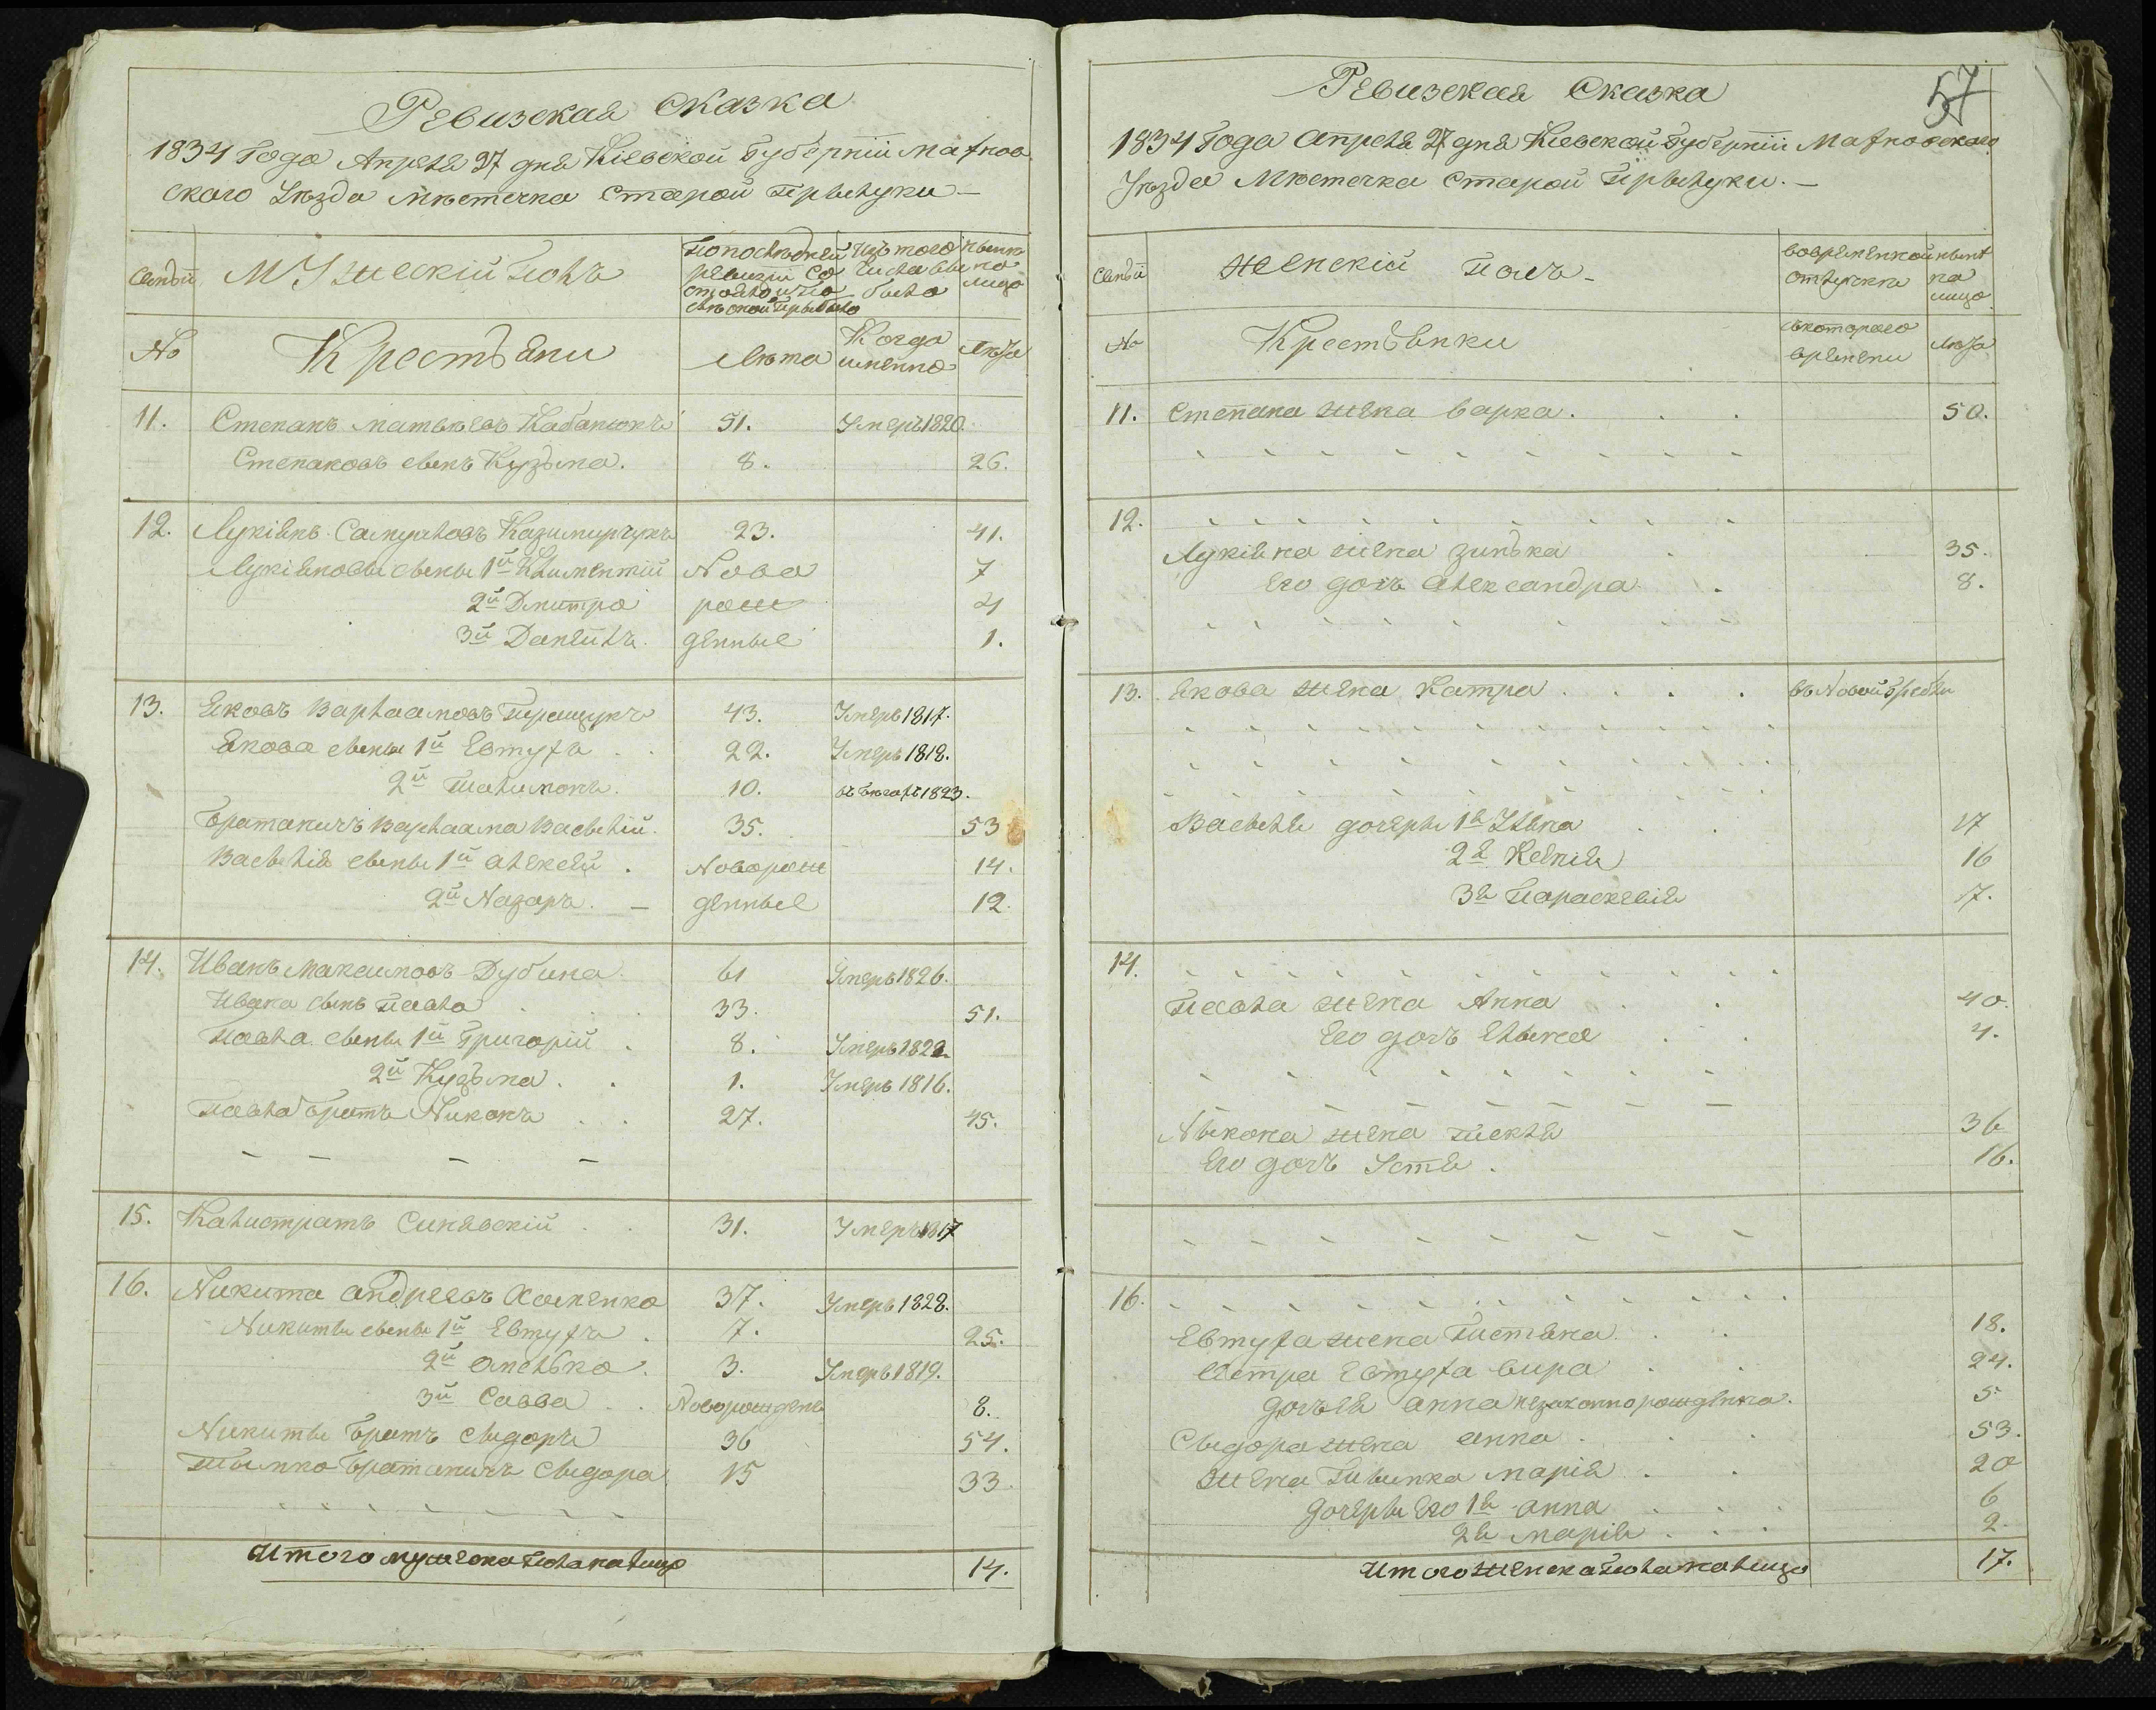 Ревизская Сказка
1834 Года Апреля 27 дня Кіевской Губерніи Махнов
ского Уѣзда мѣстечка Старой Прылуки —
Семьи
Мужескій Полъ
По последней ревизіи состояло и после оной прибыло
Изъ того числа выбыло
Ныне на лицо
№
Крестьяни
Лѣта
Когда именно
Лѣта
11. Степанъ Матвѣевъ Кабанюкъ 51. Умеръ 1820.
Степановъ сынъ Кузьма. 8. 26.
12. Лукіянъ Самуиловъ Казимирчукъ 23. 41.
Лукіяновы сыны 1й Климентій Ново 7
2й Дмитро рож 4
3й Данеилъ. денные 1.
13. Яковъ Варлаамовъ Терещукъ 43. Умеръ 1817.
Якова сыны 1й Евтухъ . . 22. Умеръ 1818.
2й Филимонъ. 10. въ бѣгахъ 1823.
Братаничъ Варлаама Васылій. 35. 53
Васылія сыны 1й Алексей . Новорож 14.
2й Назаръ. — денные 12.
14. Иванъ Максимовъ Дубина. 61 Умеръ 1826.
Ивана сынъ Павло . . . 33. 51.
Павла сыны 1й Григорій . 8. Умеръ 1822.
2й Кузьма . . 1. Умеръ 1816.
Павла братъ Никонъ . . 27. 45.
15. Калистратъ Синявскій . . 31. Умеръ 1817
16. Никита Андреевъ Хоменко 37. Умеръ 1828.
Никиты сыны 1й Евтухъ . 7. 25.
2й Омелько . 3. Умеръ 1819.
3й Савва . . Новорожденъ 8.
Никиты братъ Сыдоръ 36 54.
братаничъ Сыдора 15 33.
Итого мужеска пола налицо 14.
Ревизская Сказка
57
1834 Года Апреля 27 дня Кіевской Губерніи Махновского
Уѣзда Мѣстечка Старой Прылуки. —
Семьи
Женскій Полъ —
Во временной отлучке
Ныне на лицо
№
Крестьянки
съ которого времени
Лѣта
11. Степана жена Варка . . . 50.
12.
Лукіяна жена Зинька . 35.
Его дочь Александра . 8.
13. Якова жена Катря . . . . въ Новой Гребли
Васылія дочеры 1я Уляна . . 17
2я Ксенія 16
3я Параскевія 17.
14.
Павла жена Анна . . 40.
Его дочь Елына . . 4.
Ныкона жена Фекля 36
Его дочь Устя . 16.
16.
Евтуха жена Тистяна . . 18.
Сестра Евтуха Вира . . 24.
дочь ея Анна незаконно рожденна. 5
Сыдора жена Анна . . . 53.
Жена Марія . . 20
дочеры его 1я Анна . . . 6
2я Марія . . . 2.
Итого женска пола налицо 17.